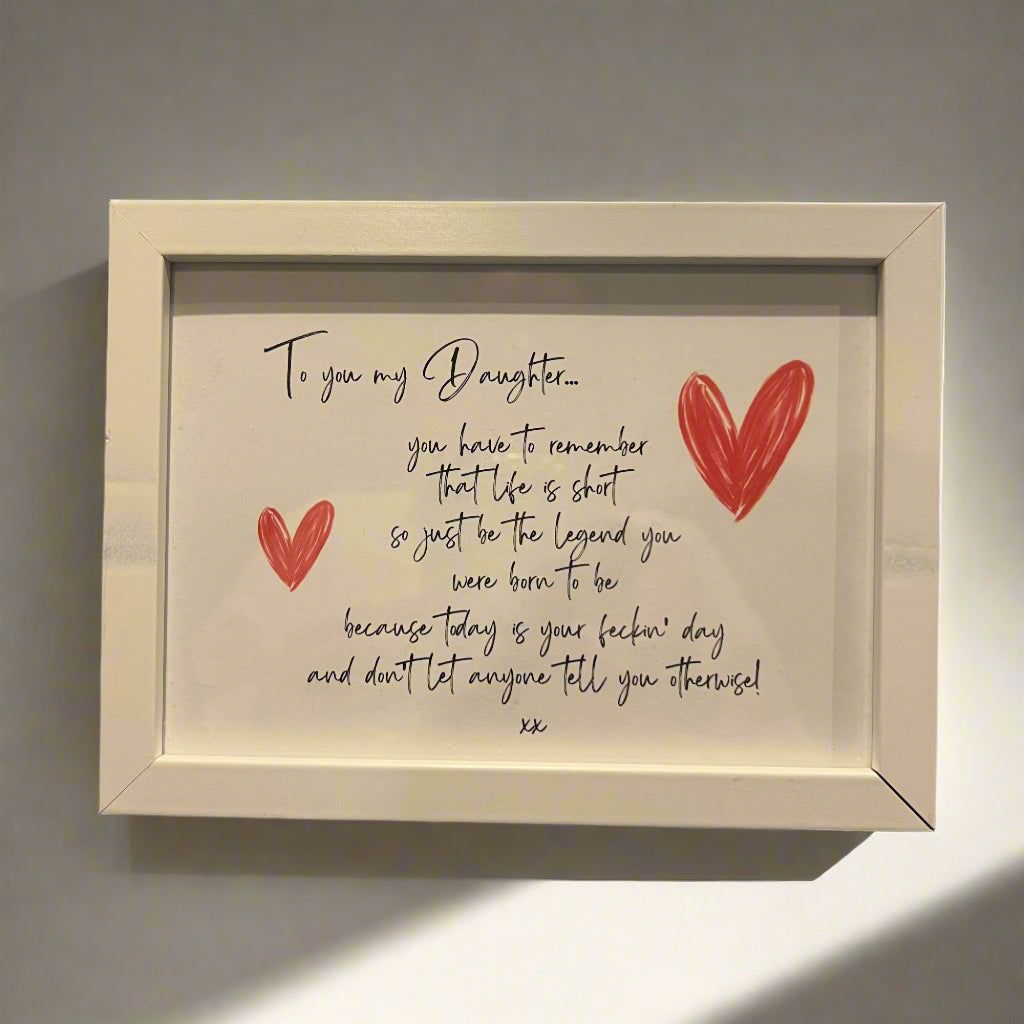 To you my Daughter...
you have to remember
that life is short
so just be the legend you
were born to be
because today is your feckin' day
and don't let anyone tell you otherwise!
xx